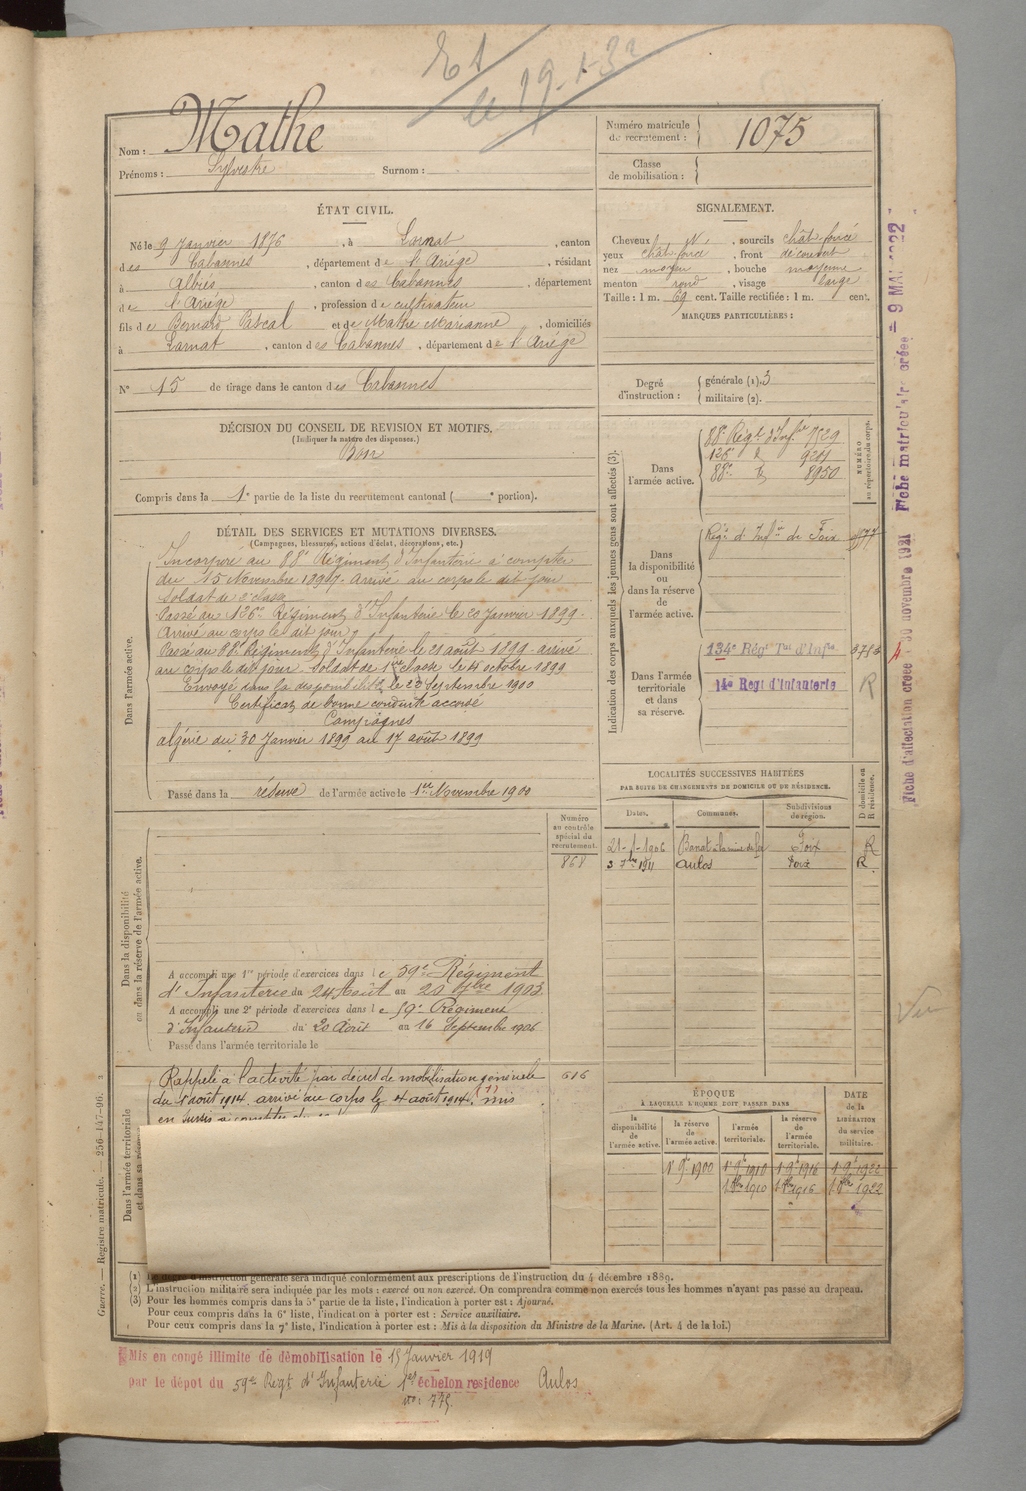 le 19-1-32
Nom : Mathe
Prénoms : Sylvestre Surnom :
Numéro matricule de recrutement : 1075
Classe de mobilisation :
ÉTAT CIVIL.
Né le 9 Janvier 1876, à Larnat, canton
des Cabannes, département de l'Ariège, résidant
à Albiès, canton des Cabannes, département
de l'Ariége, profession de cultivateur
fils de Bernard Pascal et de Mathe Marianne, domiciliés
à Larnat, canton des Cabannes, département de l'Ariège
N° 15 de tirage dans le canton des Cabannes
SIGNALEMENT.
Cheveux N., sourcils chât. foncé
yeux chât. foncé, front découvert
nez moyen, bouche moyenne
menton rond, visage large
Taille : 1 m. 69 cent. Taille rectifiée : 1 m. cent.
MARQUES PARTICULIÈRES :
Degré d'instruction : générale (1). 3
militaire (2).
DÉCISION DU CONSEIL DE REVISION ET MOTIFS.
(Indiquer la nature des dispenses.)
Bon
Compris dans la 1e partie de la liste du recrutement cantonal ( e portion).
DÉTAIL DES SERVICES ET MUTATIONS DIVERSES.
(Campagnes, blessures, actions d'éclat, décorations, etc.)
Dans l'armée active.
Incorporé au 88e Régiment d'Infanterie à compter
du 15 Novembre Arrivé au corps le dit jour
Soldat de 2e classe
Passé au 126e Régiment d'Infanterie le 20 Janvier 1899.
Arrivé au corps le dit jour
Passé au 88e Régiment d'Infanterie le 21 août 1899 arrivé
au corps le dit jour. Soldat de 1ère classe le 4 octobre 1899
Envoyé dans la disponibilité le 23 Septembre 1900
Certificat de bonne conduite accordé
Campagnes
Algérie du 30 Janvier 1899 au 17 août 1899
Passé dans la réserve de l'armée active le 1er Novembre 1900
Indication des corps auxquels les jeunes gens sont affectés (3).
NUMÉRO au répertoire du corps.
Dans l'armée active.
88e Régt d'Infie 7529
126e d° 9201
88e d° 8950
Dans la disponibilité ou dans la réserve de l'armée active.
Régt d'Infie de Foix
Dans l'armée territoriale et dans sa réserve.
134e Régt Tal d'Infie
14e Regt d'Infanterie R
LOCALITÉS SUCCESSIVES HABITÉES
PAR SUITE DE CHANGEMENTS DE DOMICILE OU DE RÉSIDENCE.
Dates. Communes. Subdivisions de région. D domicile ou R résidence.
21-1-1906 Banat à la mine de fer Foix R
3 7bre 1911 Aulos Foix R.
Dans la disponibilité ou dans la réserve de l'armée active.
Numéro au contrôle spécial du recrutement.
868
A accompli une 1re période d'exercices dans le 59e Régiment
d'Infanterie du 24 Août au 20 7bre 1903
A accompli une 2e période d'exercices dans le 59e Régiment
d'Infanterie du 20 Août au 16 Septembre 1906
Passé dans l'armée territoriale le
Dans l'armée territoriale et dans sa réserve
Rappelé à l'activité par décret de mobilisation générale 616
du 1 août 1914. arrivé au corps le 4 août 1914. (1) mis
en sursis à compter du
ÉPOQUE
À LAQUELLE L'HOMME DOIT PASSER DANS
la disponibilité de l'armée active. la réserve de l'armée active. l'armée territoriale. la réserve de l'armée territoriale. DATE de la LIBÉRATION du service militaire.
1er 9bre 1900 1er 9bre 1910 1er 9bre 1916 1er 9bre 1922
1er 8bre 1910 1er 8bre 1916 1er 8bre 1922
(1) Le degré d'instruction générale sera indiqué conformément aux prescriptions de l'instruction du 4 décembre 1889.
(2) L'instruction militaire sera indiquée par les mots : exercé ou non exercé. On comprendra comme non exercés tous les hommes n'ayant pas passé au drapeau.
(3) Pour les hommes compris dans la 5e partie de la liste, l'indication à porter est : Ajourné.
Pour ceux compris dans la 6e liste, l'indication à porter est : Service auxiliaire.
Pour ceux compris dans la 7e liste, l'indication à porter est : Mis à la disposition du Ministre de la Marine. (Art. 4 de la loi.)
Mis en congé illimité de démobilisation le 15 Janvier 1919
par le dépôt du 59e Régt d'Infanterie 1er échelon residence Aulos
no: 775.
Guerre. — Registre matricule. — 256-147-96.
Fiche d'affectation créée 30 novembre 1921
Fiche matriculaire créée = 9 MAI 1922
Vu